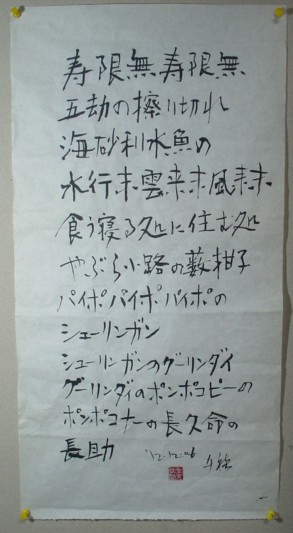 寿限無寿限無
五劫の擦り切れ
海砂利水魚の
水行末雲来末風来末
食う寝る処に住む処
やぶら小路の藪柑子
パイポパイポパイポの
シューリンガン
シューリンガンのグーリンダイ
グーリンダイのポンポコピーの
ポンポコナーの長久命の
長助
'12.12.26